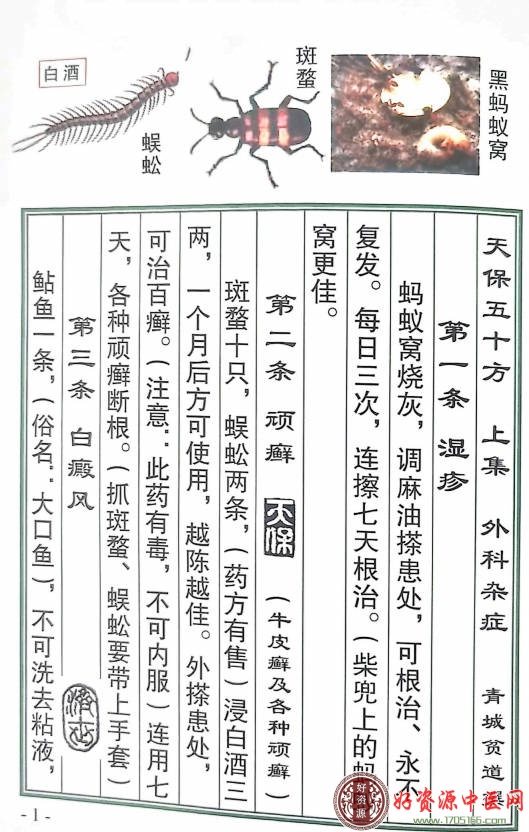 白酒
蜈蚣
斑蝥
黑蚂蚁窝
天保五十方 上集 外科杂症 青城贫道
第一条 湿疹
蚂蚁窝烧灰，调麻油搽患处，可根治、永不
复发。每日三次，连擦七天根治。（柴兜上的蚂
窝更佳。
第二条 顽癣 天保 （牛皮癣及各种顽癣）
斑蝥十只，蜈蚣两条，（药方有售）浸白酒三
两，一个月后方可使用，越陈越佳。外搽患处，
可治百癣。（注意：此药有毒，不可内服）连用七
天，各种顽癣断根。（抓斑蝥、蜈蚣要带上手套）
第三条 白癜风
鲇鱼一条，（俗名：大口鱼），不可洗去粘液，
- 1 -
好资源
好资源中医网
www.1705166.com